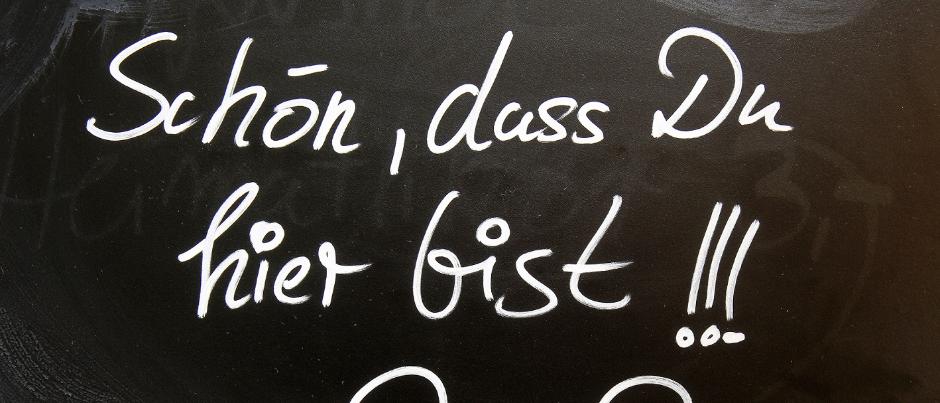 Schön, dass Du
hier bist !!!